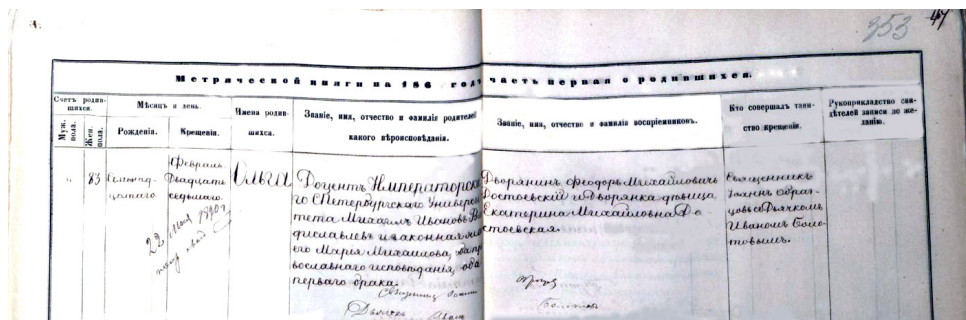 4.
353
Метрической книги на 186 годъ часть первая о родившихся.
Счетъ родив-
шихся.
Муж. пола.
Жен. пола.
Мѣсяцъ и день.
Рожденія.
Крещенія.
Имена родив-
шихся.
Званіе, имя, отчество и фамилія родителей
какого вѣроисповѣданія.
Званіе, имя, отчество и фамилія воспріемниковъ.
Кто совершалъ таин-
ство крещенія.
Рукоприкладство сви-
дѣтелей записи по же-
ланію.
"
83
Семнад-
цатаго.
Февраль
Двадцать
седьмаго.
22 Мая 1890 г.
Ольга
Доцентъ Императорска
го С Петербургскаго Универси
тета Михаилъ Ивановъ Вла
диславлевъ и законная жена
его Марья Михайлова, оба пра
вославнаго исповѣданія, оба
перваго брака.
Священникъ Іоаннъ
Дьячокъ Иванъ
Дворянинъ Феодоръ Михайловичъ
Достоевскій и Дворянка дѣвица
Екатерина Михайловна До-
стоевская.
Священникъ
Іоаннъ Образ-
цовъ съ Дьячкомъ
Иваномъ Боло-
товымъ.